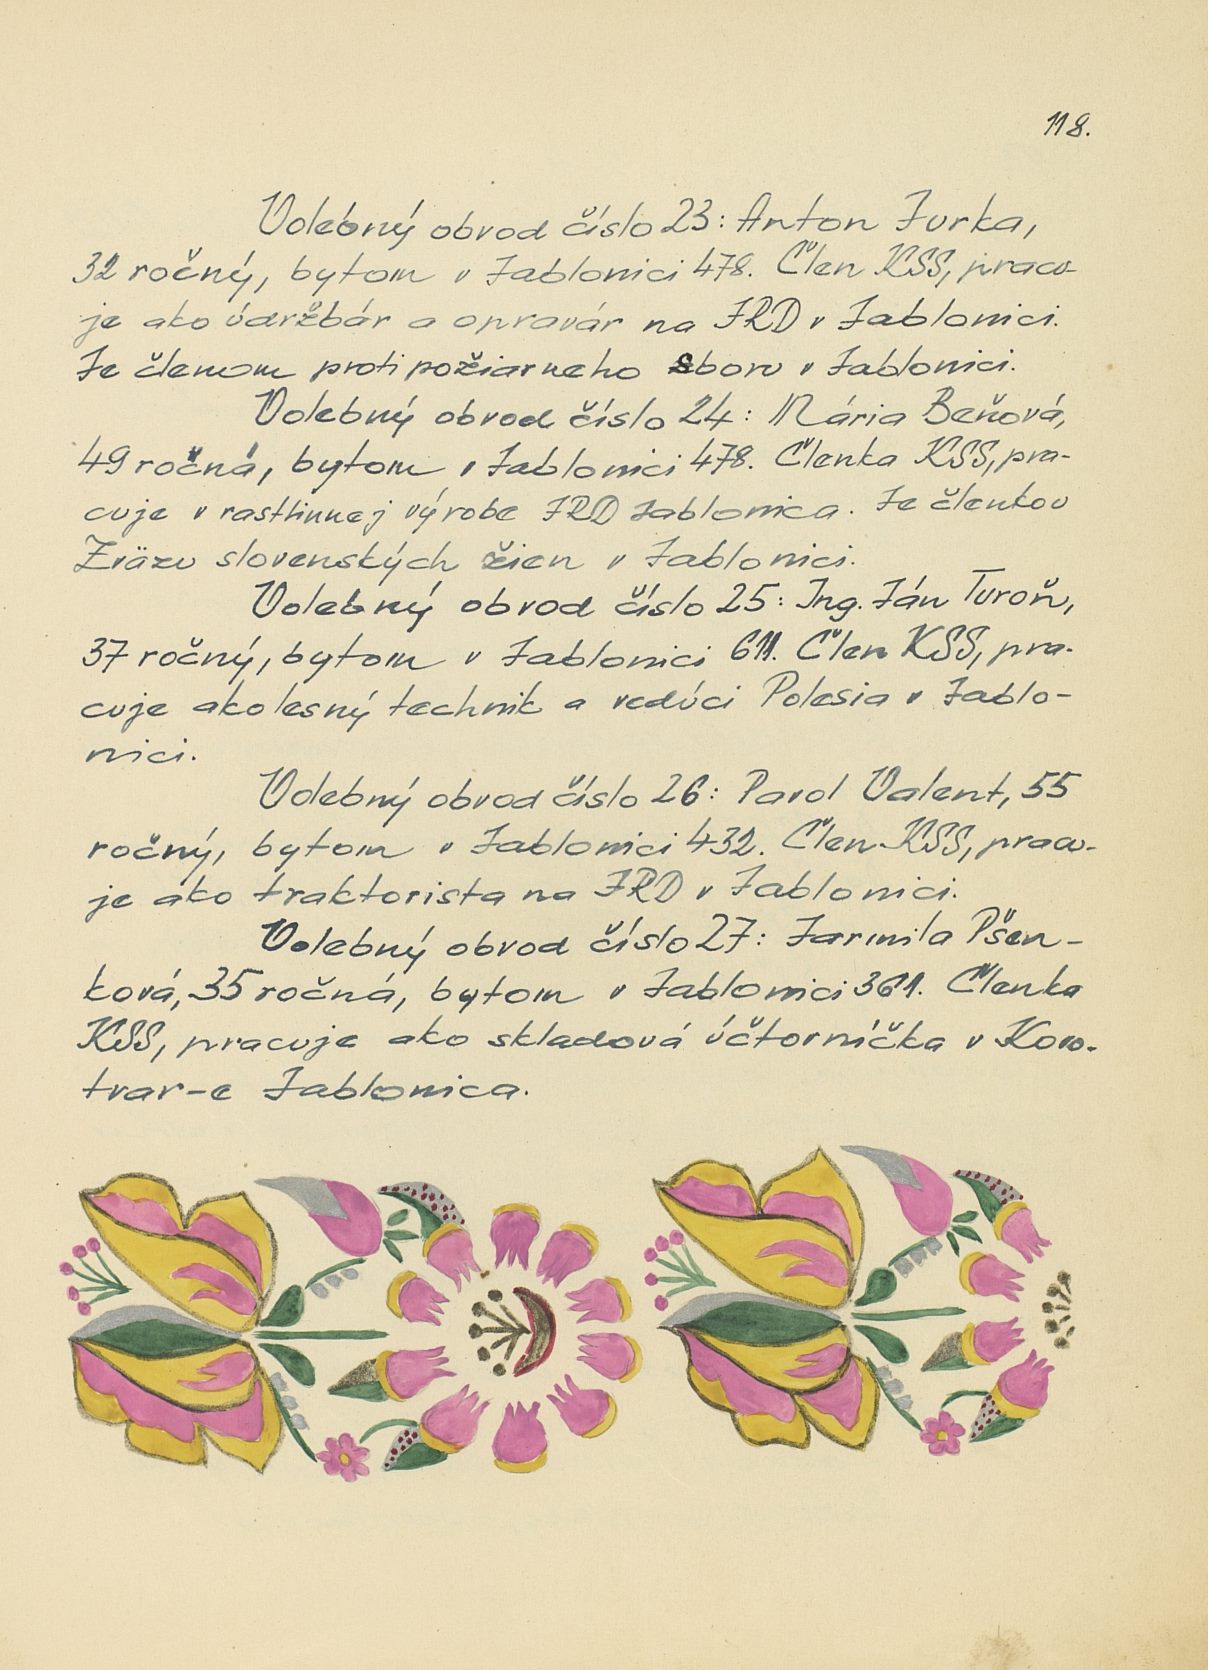 118.
Volebný obvod číslo 23: Anton Jurka,
32 ročný, bytom v Jablonici 478. Člen KSS, pracu-
je ako údržbár a opravár na JRD v Jablonici.
Je členom proti požiarneho sboru v Jablonici.
Volebný obvod číslo 24: Mária Beňová,
49 ročná, bytom v Jablonici 478. Členka KSS, pra-
cuje v rastlinnej výrobe JRD Jablonica. Je členkou
Zväzu slovenských žien v Jablonici.
Volebný obvod číslo 25: Ing. Ján Turoň,
37 ročný, bytom v Jablonici 611. Člen KSS, pra-
cuje ako lesný technik a vedúci Polesia v Jablo-
nici.
Volebný obvod číslo 26: Pavol Valent, 55
ročný, bytom v Jablonici 432. Člen KSS, pracu-
je ako traktorista na JRD v Jablonici.
Volebný obvod číslo 27: Jarmila Pšen-
ková, 35 ročná, bytom v Jablonici 361. Členka
KSS, pracuje ako skladová účtovníčka v Kovo-
tvar-e Jablonica.